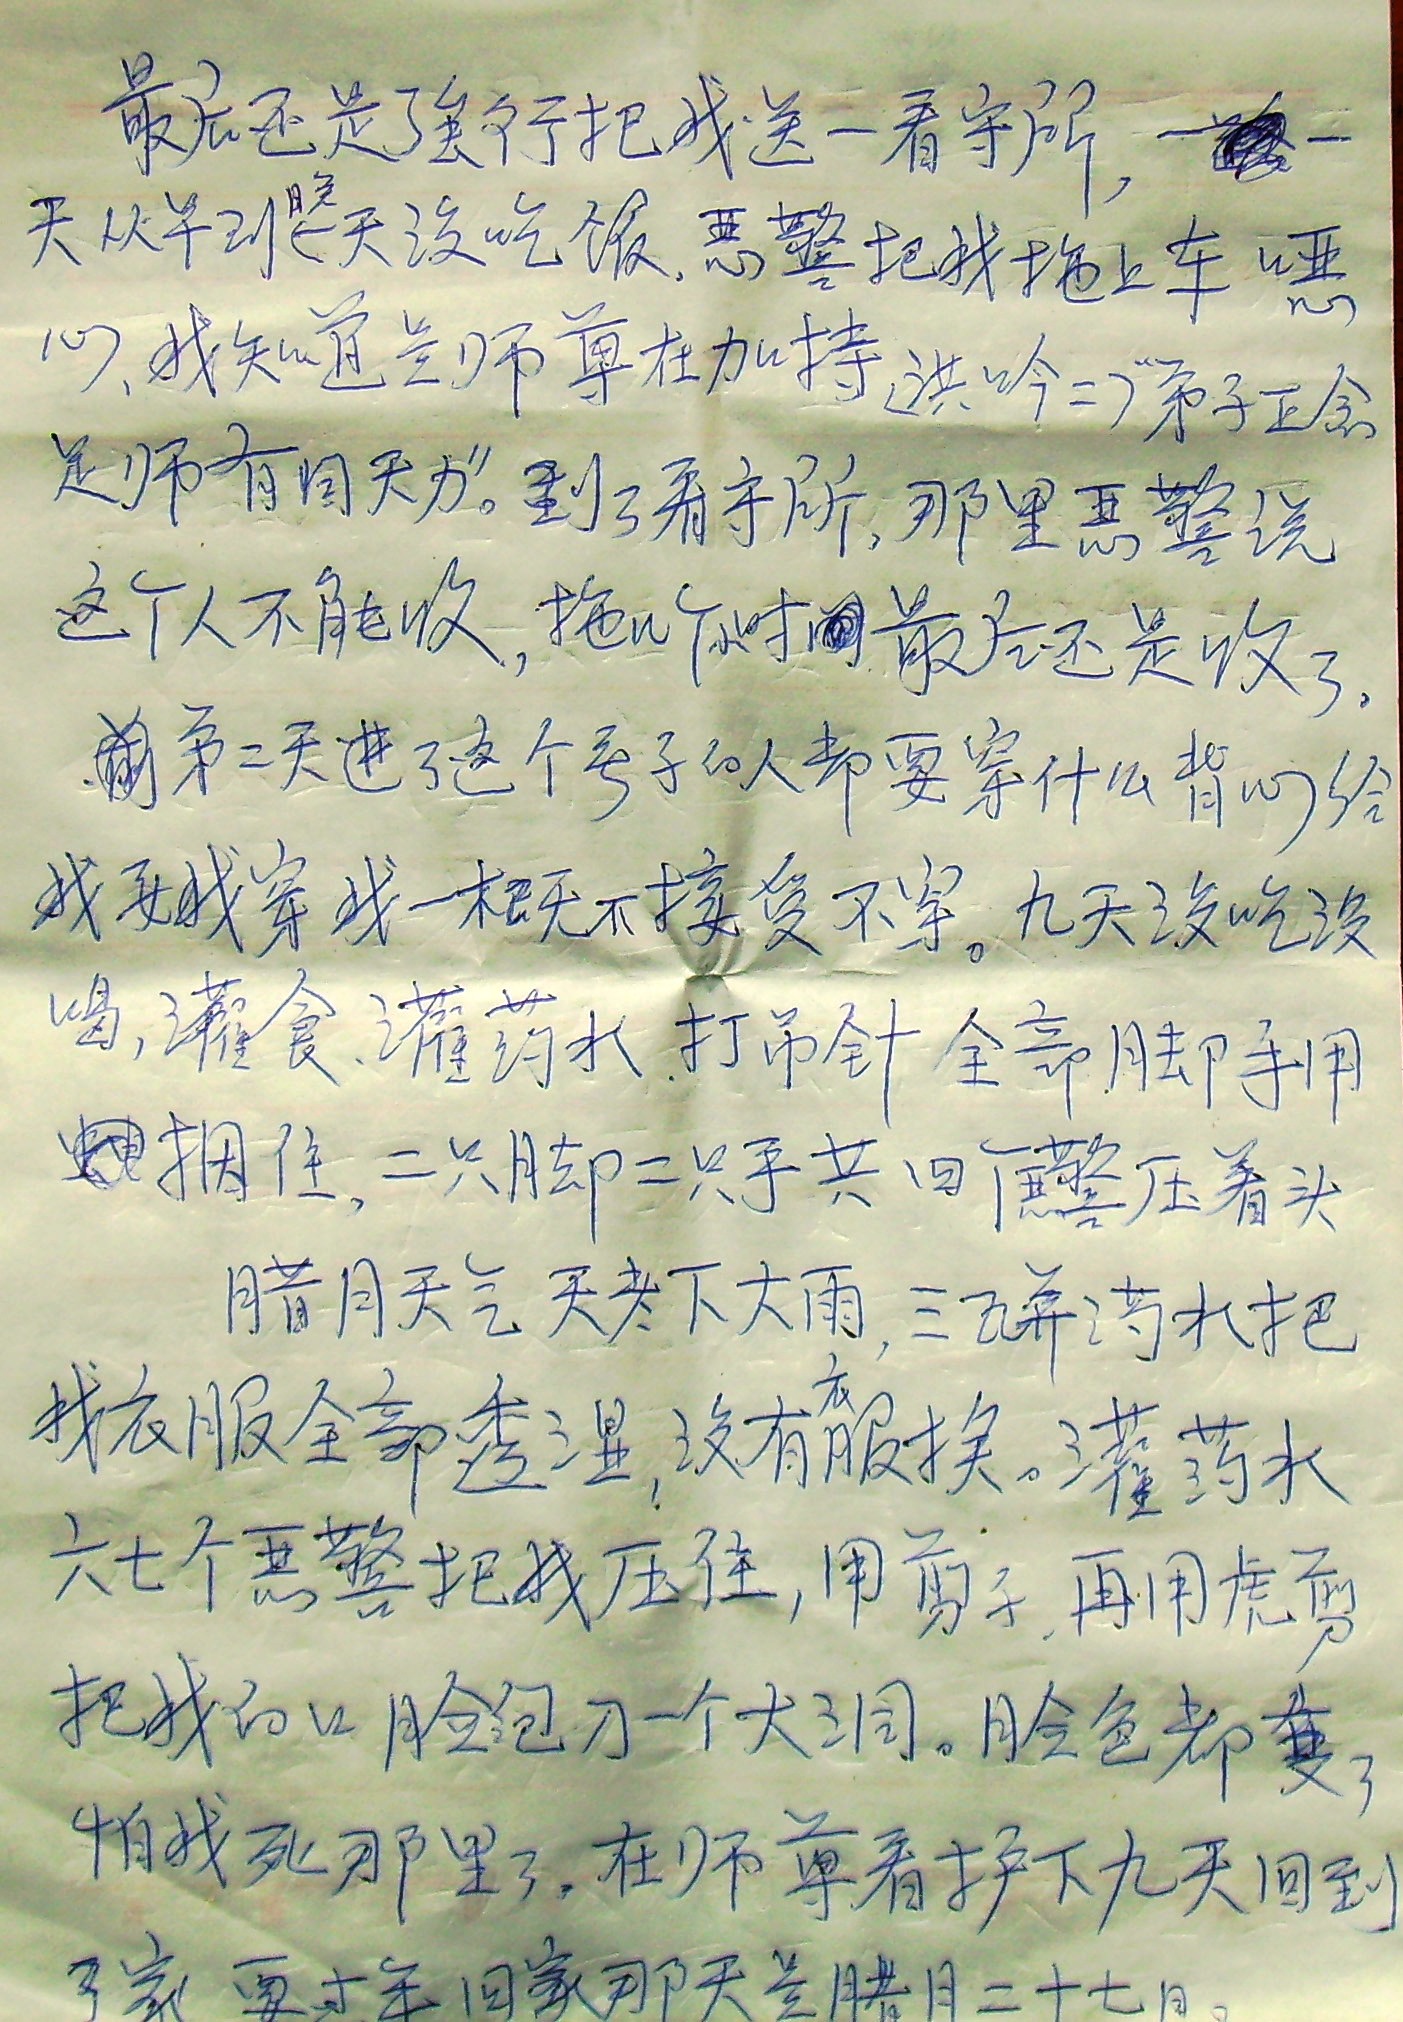 最后还是强行把我送一看守所,一一
天从早到晚天没吃饭.恶警把我拖上车 恶
心、我知道是师尊在加持 洪吟二)"弟子正念
足师有回天力"。到了看守所,那里恶警说
这个人不能收,拖几个小时 最后还是收了。
第二天进了这个号子的人都要穿什么背心给
我要我穿我一概不接受不穿。九天没吃没
喝,灌食、灌药水.打吊针 全部脚手用
捆住,二只脚二只手共四个恶警压着头
腊月天气 天老下大雨,三瓶药水把
我衣服全部透湿,没有衣服换。灌药水
六七个恶警把我压住,用剪子.再用虎剪
把我的口脸 刀一个大洞。脸色都变了
怕我死那里了。在师尊看护下九天回到
了家 要过年回家那天是腊月二十七日。